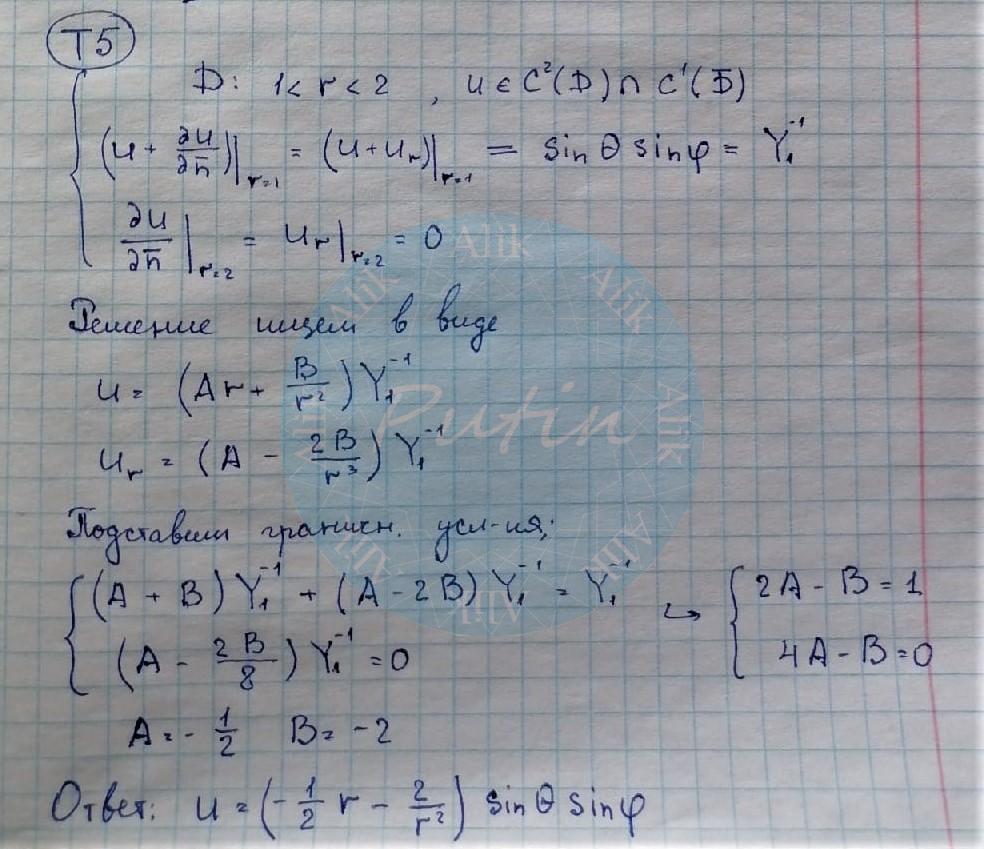 T5
D: 1 < r < 2 , u ∈ C²(D) ∩ C¹(D̄)
(u + ∂u/∂n̄)|r=1 = (u + uᵣ)|r=1 = sin θ sin φ = Y₁⁻¹
∂u/∂n̄|r=2 = uᵣ|r=2 = 0
Решение ищем в виде
u = (Ar + B/r²) Y₁⁻¹
uᵣ = (A - 2B/r³) Y₁⁻¹
Подставим граничн. усл-ия;
{ (A + B) Y₁⁻¹ + (A - 2B) Y₁⁻¹ = Y₁⁻¹ ↪ { 2A - B = 1
(A - 2B/8) Y₁⁻¹ = 0 4A - B = 0
A = - 1/2 B = -2
Ответ: u = (- 1/2 r - 2/r²) sin θ sin φ
Putin
Alik
Alik
Alik
Alik
Alik
Alik
Alik
Alik